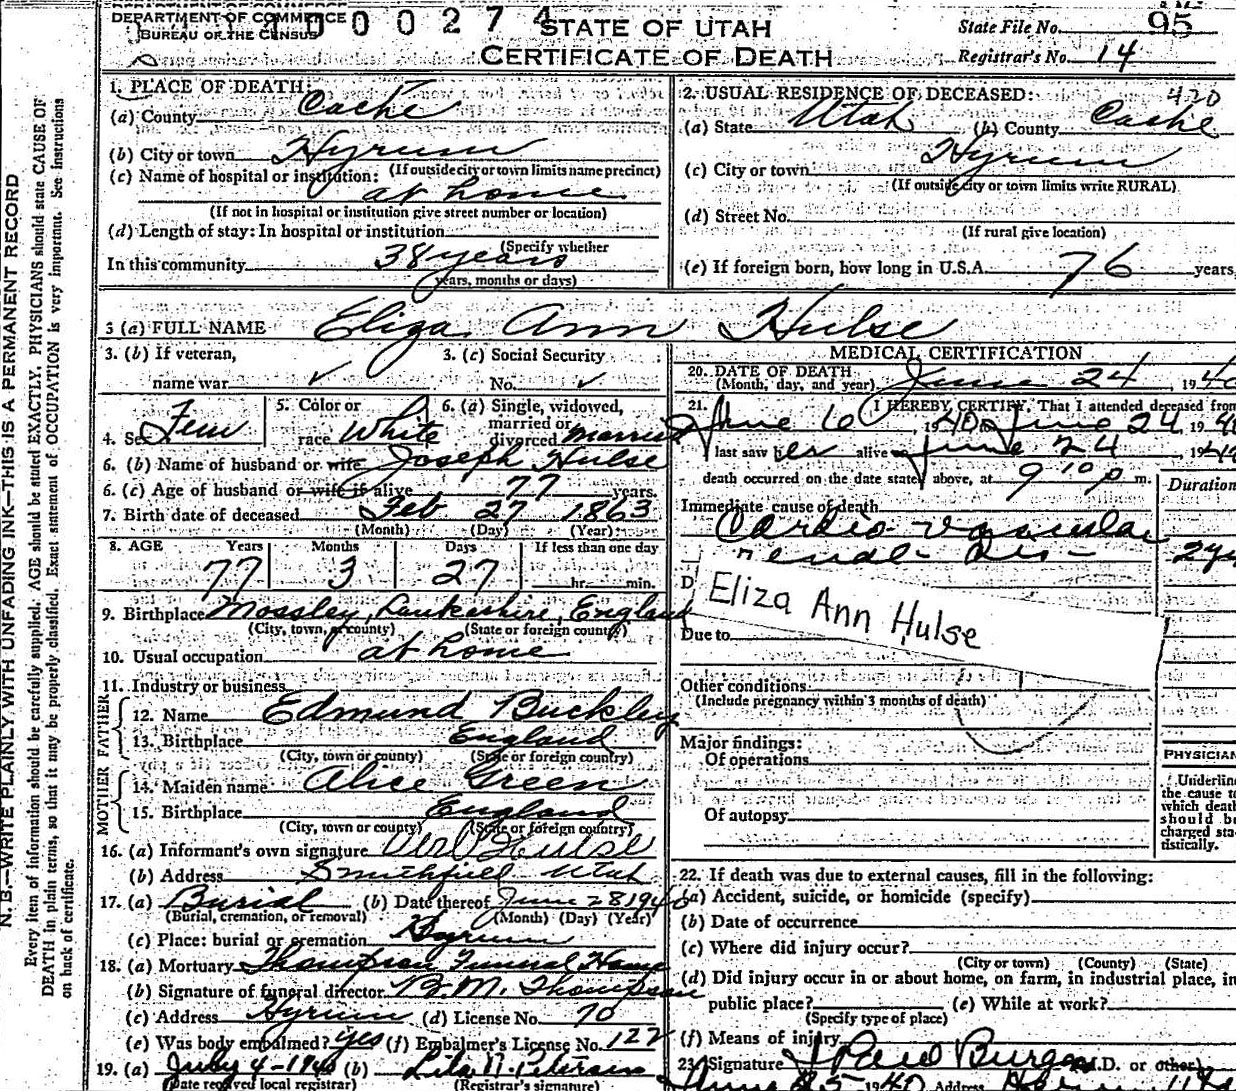 DEPARTMENT OF COMMERCE
BUREAU OF THE CENSUS
0 0 2 7 4
STATE OF UTAH
CERTIFICATE OF DEATH
State File No. 95
Registrar's No. 14
N. B.—WRITE PLAINLY, WITH UNFADING INK—THIS IS A PERMANENT RECORD
Every item of information should be carefully supplied. AGE should be stated EXACTLY. PHYSICIANS should state CAUSE OF
DEATH in plain terms, so that it may be properly classified. Exact statement of OCCUPATION is very important. See instructions
on back of certificate.
1. PLACE OF DEATH:
(a) County Cache
(b) City or town Hyrum
(If outside city or town limits name precinct)
(c) Name of hospital or institution:
at home
(If not in hospital or institution give street number or location)
(d) Length of stay: In hospital or institution
(Specify whether
In this community 38 years
years, months or days)
2. USUAL RESIDENCE OF DECEASED: 420
(a) State Utah (b) County Cache
(c) City or town Hyrum
(If outside city or town limits write RURAL)
(d) Street No.
(If rural give location)
(e) If foreign born, how long in U.S.A. 76 years
3 (a) FULL NAME Eliza Ann Hulse
3. (b) If veteran,
name war ✓
3. (c) Social Security
No. ✓
4. Sex Fem
5. Color or
race White
6. (a) Single, widowed,
married or
divorced Married
6. (b) Name of husband or wife Joseph Hulse
6. (c) Age of husband or wife if alive 77 years.
7. Birth date of deceased Feb 27 1863
(Month) (Day) (Year)
8. AGE Years Months Days If less than one day
77 3 27 hr. min.
9. Birthplace Mossley, Lankashire, England
(City, town, or county) (State or foreign country)
10. Usual occupation at home
11. Industry or business
FATHER
12. Name Edmund Buckley
13. Birthplace England
(City, town or county) (State or foreign country)
MOTHER
14. Maiden name Alice Green
15. Birthplace England
(City, town or county) (State or foreign country)
16. (a) Informant's own signature Hulse
(b) Address Smithfield Utah
17. (a) Burial (b) Date thereof June 28 1940
(Burial, cremation, or removal) (Month) (Day) (Year)
(c) Place: burial or cremation Hyrum
18. (a) Mortuary Thompson Funeral Home
(b) Signature of funeral director B. M. Thompson
(c) Address Hyrum (d) License No. 70
(e) Was body embalmed? yes (f) Embalmer's License No. 122
19. (a) July 4-1940 (b) Petersen
(Date received local registrar) (Registrar's signature)
MEDICAL CERTIFICATION
20. DATE OF DEATH
(Month, day, and year) June 24, 1940
21. I HEREBY CERTIFY, That I attended deceased from
June 10, 1940 June 24, 1940
last saw her alive June 24 1940
death occurred on the date stated above, at 9 10 p m.
Duration
Immediate cause of death
Cardio-vascular
renal Dis-
Eliza Ann Hulse
Due to
Other conditions
(Include pregnancy within 3 months of death)
Major findings:
Of operations
Of autopsy
PHYSICIAN
Underline
the cause to
which death
should be
charged sta-
tistically.
22. If death was due to external causes, fill in the following:
(a) Accident, suicide, or homicide (specify)
(b) Date of occurrence
(c) Where did injury occur?
(City or town) (County) (State)
(d) Did injury occur in or about home, on farm, in industrial place, in
public place? (e) While at work?
(Specify type of place)
(f) Means of injury
23. Signature Paul Burgess (M.D. or other)
1940 Address